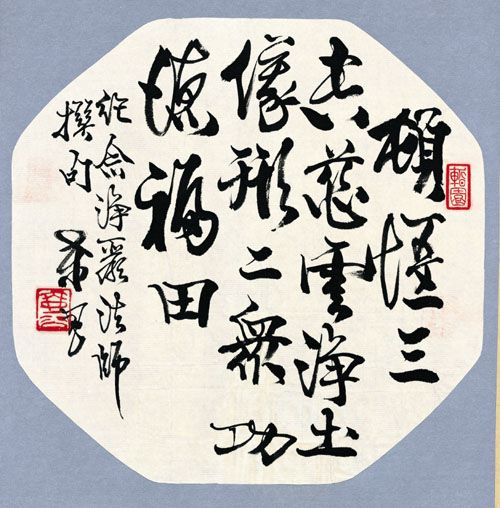 頓悟三
慈雲淨土
儀形二眾功
德福田
紀念淨嚴法師
撰句